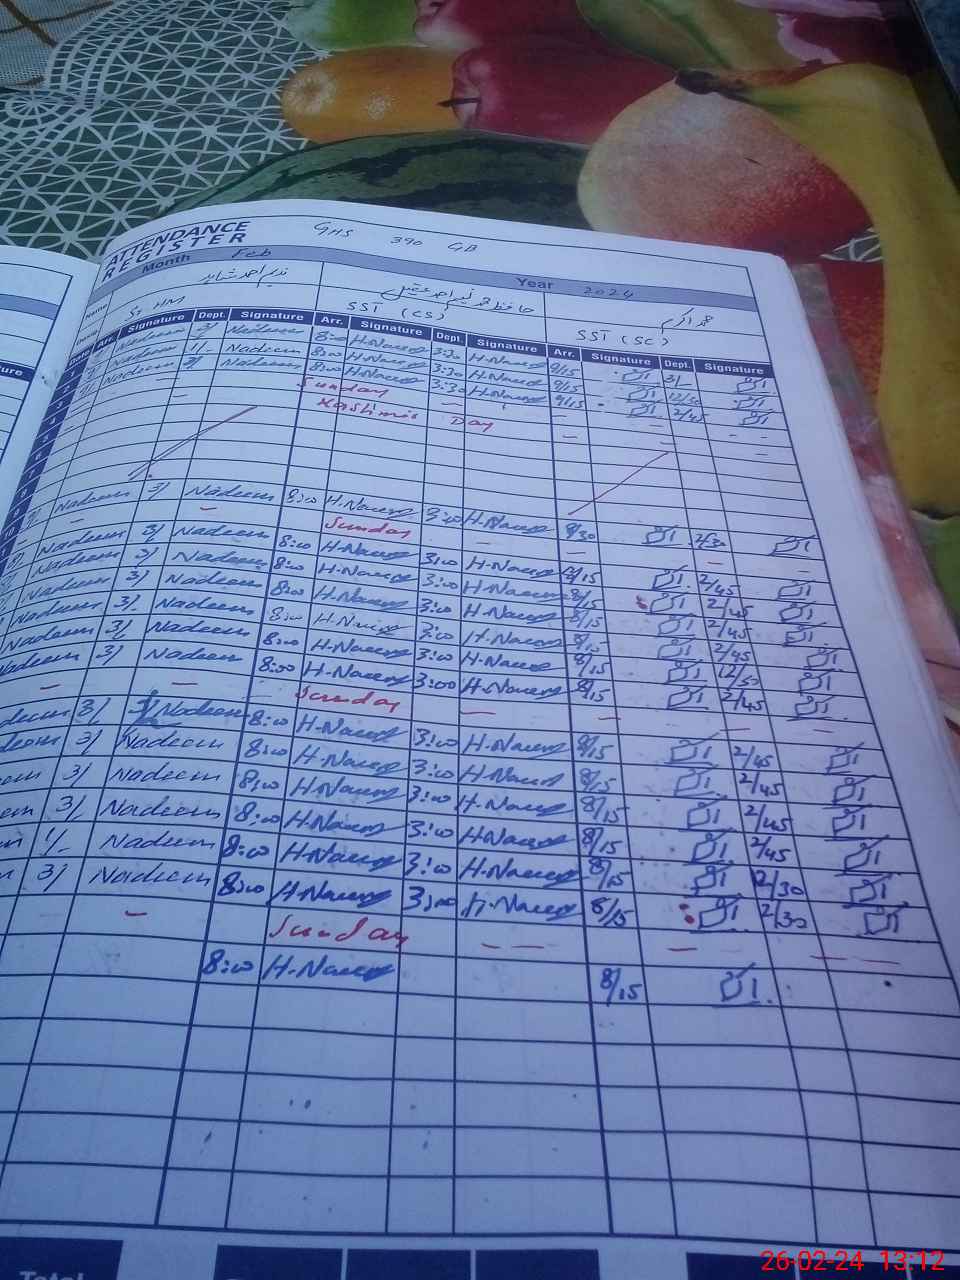 ATTENDANCE
REGISTER
GHS 390 GB
Month Feb Year 2024
Name ندیم احمد شاہد حافظ محمد نعیم احمد محمد اکرم
HM SST (CS) SST (SC)
Date Arr. Signature Dept. Signature Arr. Signature Dept. Signature Arr. Signature Dept. Signature
Nadeem 3/ Nadeem 8:00 H.Naeem 3:30 H.Naeem 8/15 3/
Nadeem 1/- Nadeem 8:00 H.Naeem 3:30 H.Naeem 8/15 12/30
Nadeem 3/ Nadeem 8:00 H.Naeem 3:30 H.Naeem 8/15 2/45
Sunday
Kashmir Day
Nadeem 3/ Nadeem 8:00 H.Naeem 3:30 H.Naeem 8/30 2/30
Sunday
Nadeem 3/ Nadeem 8:00 H.Naeem 3:00 H.Naeem 8/15 2/45
Nadeem 3/ Nadeem 8:00 H.Naeem 3:00 H.Naeem 8/15 2/45
Nadeem 3/ Nadeem 8:00 H.Naeem 3:00 H.Naeem 8/15 2/45
Nadeem 3/ Nadeem 8:00 H.Naeem 3:00 H.Naeem 8/15 2/45
Nadeem 3/ Nadeem 8:00 H.Naeem 3:00 H.Naeem 8/15 12/30
Nadeem 3/ Nadeem 8:00 H.Naeem 3:00 H.Naeem 8/15 2/45
Sunday
deem 3/ Nadeem 8:00 H.Naeem 3:00 H.Naeem 8/15 2/45
deem 3/ Nadeem 8:00 H.Naeem 3:00 H.Naeem 8/15 2/45
eem 3/ Nadeem 8:00 H.Naeem 3:00 H.Naeem 8/15 2/45
em 3/ Nadeem 8:00 H.Naeem 3:00 H.Naeem 8/15 2/45
m 1/- Nadeem 8:00 H.Naeem 3:00 H.Naeem 8/15 2/30
3/ Nadeem 8:00 H.Naeem 3:00 H.Naeem 8/15 2/30
Sunday
8:00 H.Naeem 8/15
Total
26-02-24 13:12